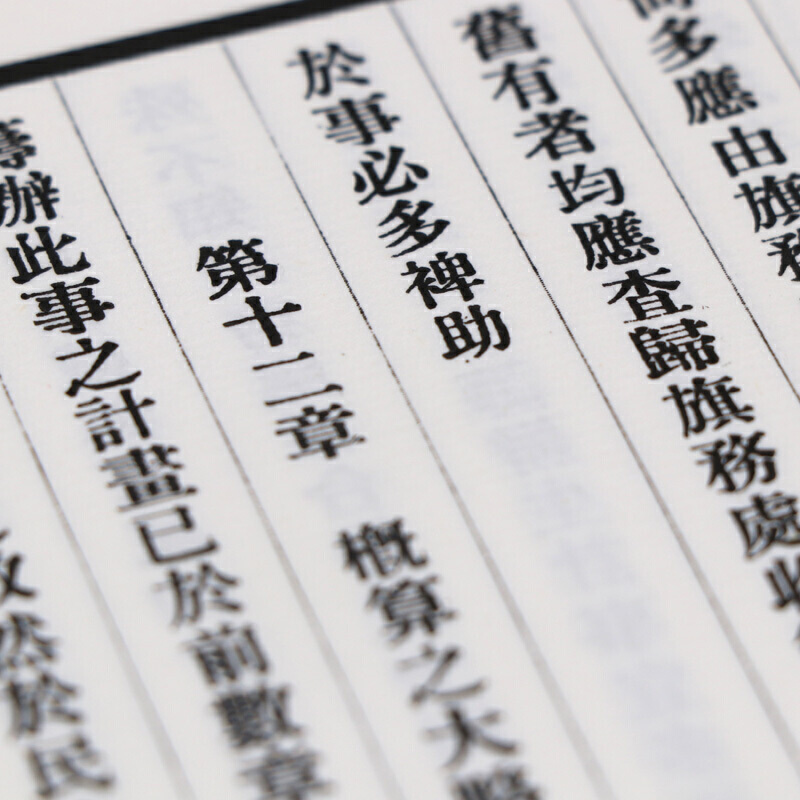 多應由旗務
舊有者均應查歸旗務處收
於事必多裨助
第十二章 概算之大略
籌辦此事之計畫已於前數章
然於民